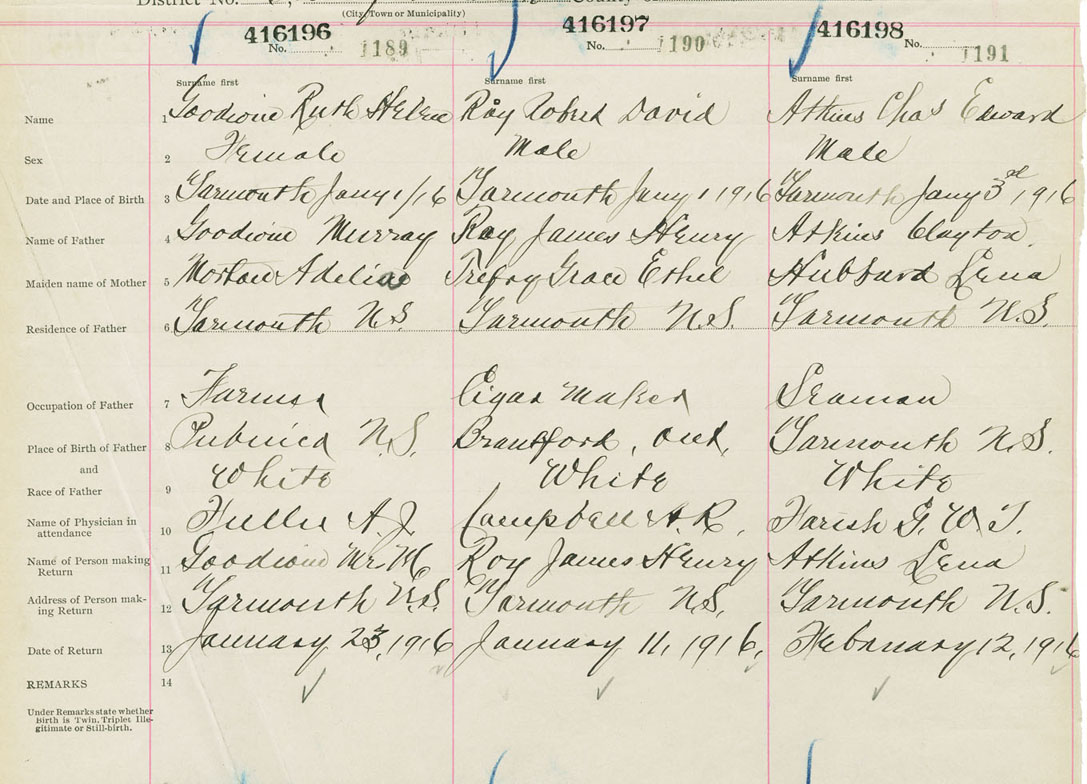 District No.
(City, Town or Municipality)
416196 416197 416198
No. 1189 No. 1190 No. 1191
Surname first Surname first Surname first
Name 1 Goodwin Ruth Helen Roy Robert David Atkins Chas Edward
Sex 2 Female Male Male
Date and Place of Birth 3 Yarmouth Jany 1/16 Yarmouth Jany 1 1916 Yarmouth Jany 3rd, 1916
Name of Father 4 Goodwin Murray Roy James Henry Atkins Clayton
Maiden name of Mother 5 Adeline Trefry Grace Ethel Hubbard Lena
Residence of Father 6 Yarmouth N.S. Yarmouth N.S. Yarmouth N.S.
Occupation of Father 7 Farmer Cigar Maker Seaman
Place of Birth of Father 8 Pubnico N.S. Brantford, Ont, Yarmouth N.S.
and White White White
Race of Father 9
Name of Physician in
attendance 10 Fuller A. J. Campbell A. R. Farish G. W. T.
Name of Person making
Return 11 Goodwin Mr. M Roy James Henry Atkins Lena
Address of Person mak-
ing Return 12 Yarmouth N.S. Yarmouth N.S. Yarmouth N.S.
Date of Return 13 January 23, 1916 January 11, 1916, February 12, 1916
REMARKS 14
Under Remarks state whether
Birth is Twin, Triplet Ille-
gitimate or Still-birth.